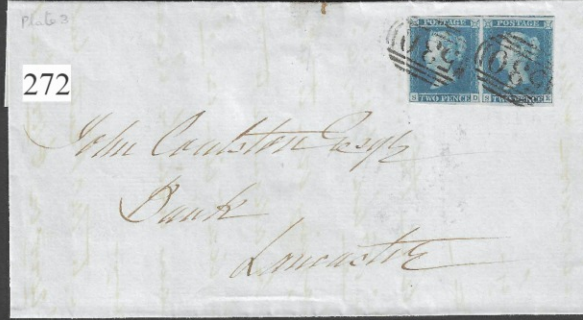 Plate 3
272
POSTAGE POSTAGE
TWO PENCE TWO PENCE
John Coulston Esqr
Bank
Lancaster